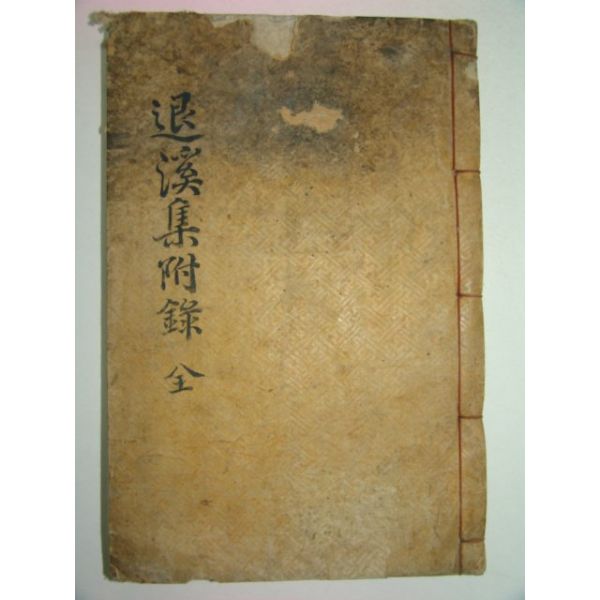 退溪集附錄 全